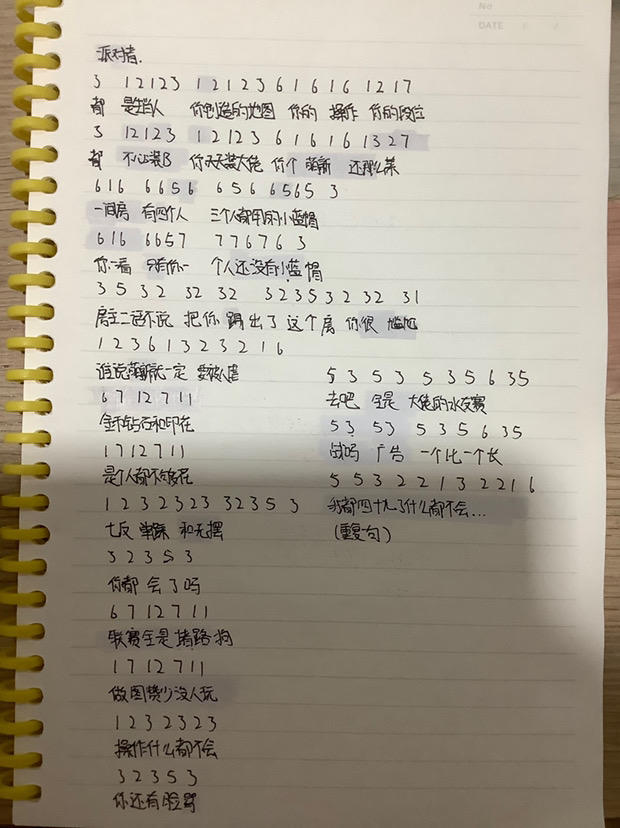 No
DATE
派对者.
3 12123 121236 16 16 1217
都 是鉴人 你创造的地图 你的 操作 你的段位
3 12123 12123 6 16 161327
都 不心装B 你天天装大佬 你个 萌新 还那么菜
616 6656 656 6565 3
一间房 有四个人 三个人都用的小蓝帽
616 6657 77676 3
你一看 只有你一 个人还没有小蓝帽
3 5 32 32 32 32353 2 32 31
房主二话不说 把你 踢出了这个房 你很 尴尬
1 2 3 6 1 3 2 3 2 1 6
谁说萌新就一定 要被人虐
6 7 12 7 11
金币钻石和印花
1 7 12 7 11
是个人都不够花
1 2 3 2 3 2 3 3 2 3 5 3
七反 单踩 和无摆
3 2 3 5 3
你都会了吗
6 7 12 7 11
联赛全是堵路狗
1 7 12 7 11
做图赞少没人玩
1 2 3 2 3 2 3
操作什么都不会
3 2 3 5 3
你还有脸骂
5 3 5 3 5 3 5 6 35
去吧 全是 大佬的水友赛
53 53 5 3 5 6 35
战吗 广告 一个比一个长
5 5 3 2 2 1 3 2 2 1 6
我都四十九了什么都不会...
(重复句)